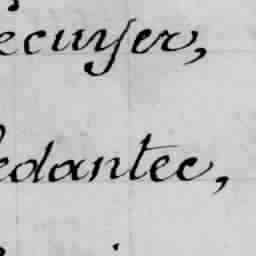 ecuyer,
edantec,